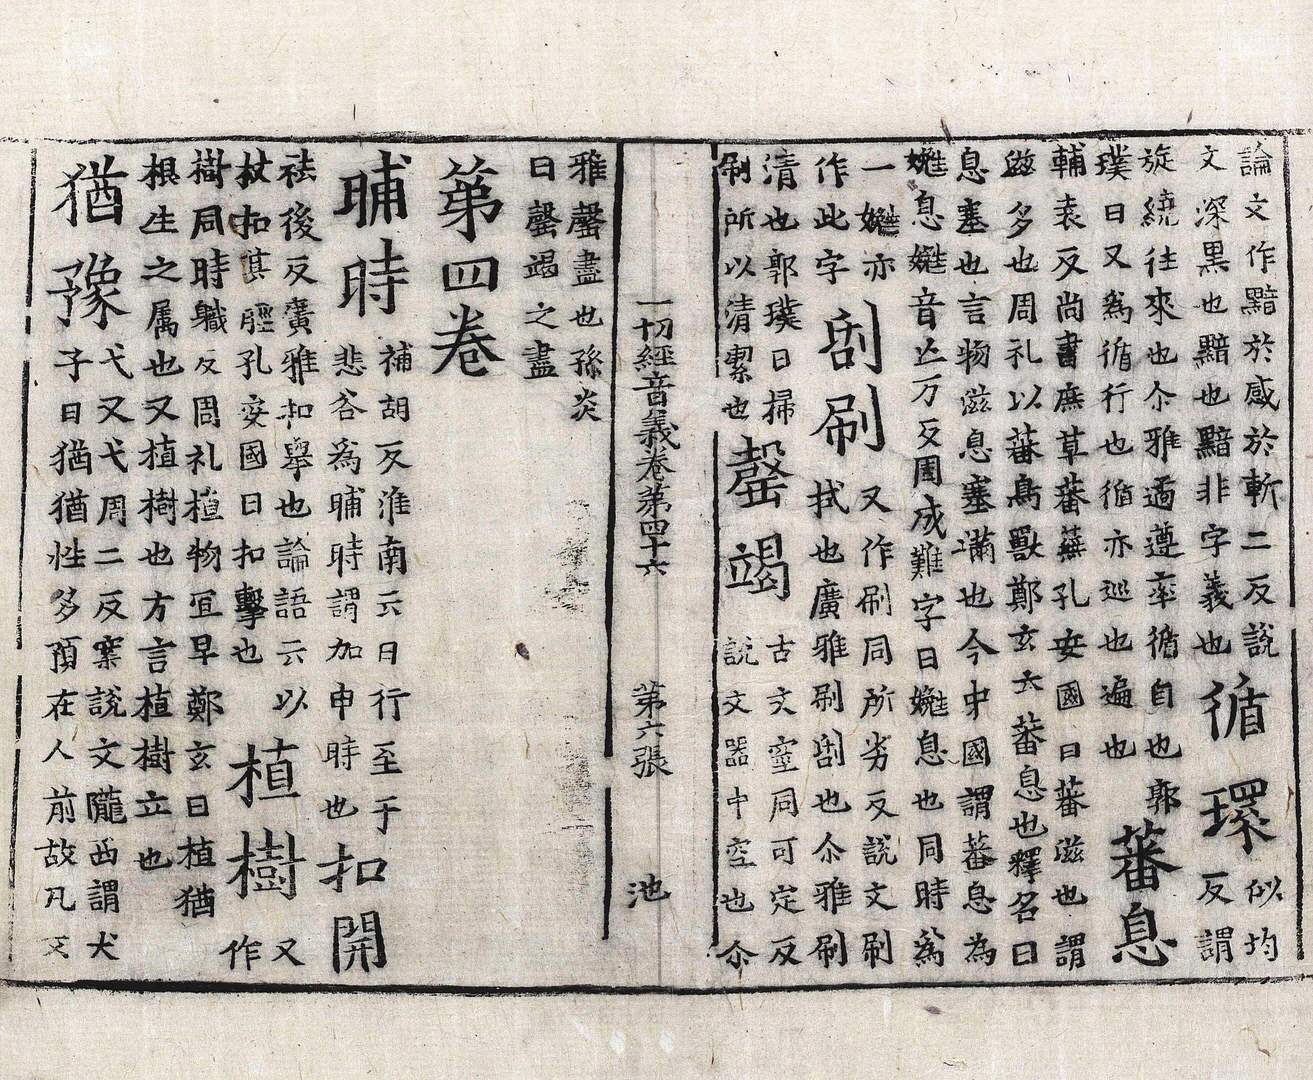 論文作黯於感於斬二反說
文深黑也黯也黯非字義也
循環
似均
反謂
旋繞往來也尒雅遹遵率循自也郭
璞曰又為循行也循亦巡也遍也
蕃息
輔袁反尚書庶草蕃蕪孔安國曰蕃滋也謂
滋多也周礼以蕃鳥獸鄭玄云蕃息也釋名曰
息塞也言物滋息塞滿也今中國謂蕃息為
嬎息嬎音亡万反周成難字曰嬎息也同時為
一嬎亦
作此字
刮刷
又作刷同所劣反說文刷
拭也廣雅刷刮也尒雅刷
清也郭璞曰掃
刷所以清潔也
罄竭
古文窒同可定反
說文器中空也尒
一切經音義卷第四十六 第六張 池
雅罄盡也孫炎
曰罄竭之盡
第四卷
晡時
補胡反淮南云日行至于
悲谷為晡時謂加申時也
扣開
祛後反廣雅扣舉也論語云以
杖扣其脛孔安國曰扣擊也
植樹
又
作
樹同時職反周礼植物宜早鄭玄曰植猶
根生之属也又植樹也方言植樹立也
猶豫
弋又弋周二反案說文隴西謂犬
子曰猶猶性多預在人前故凡